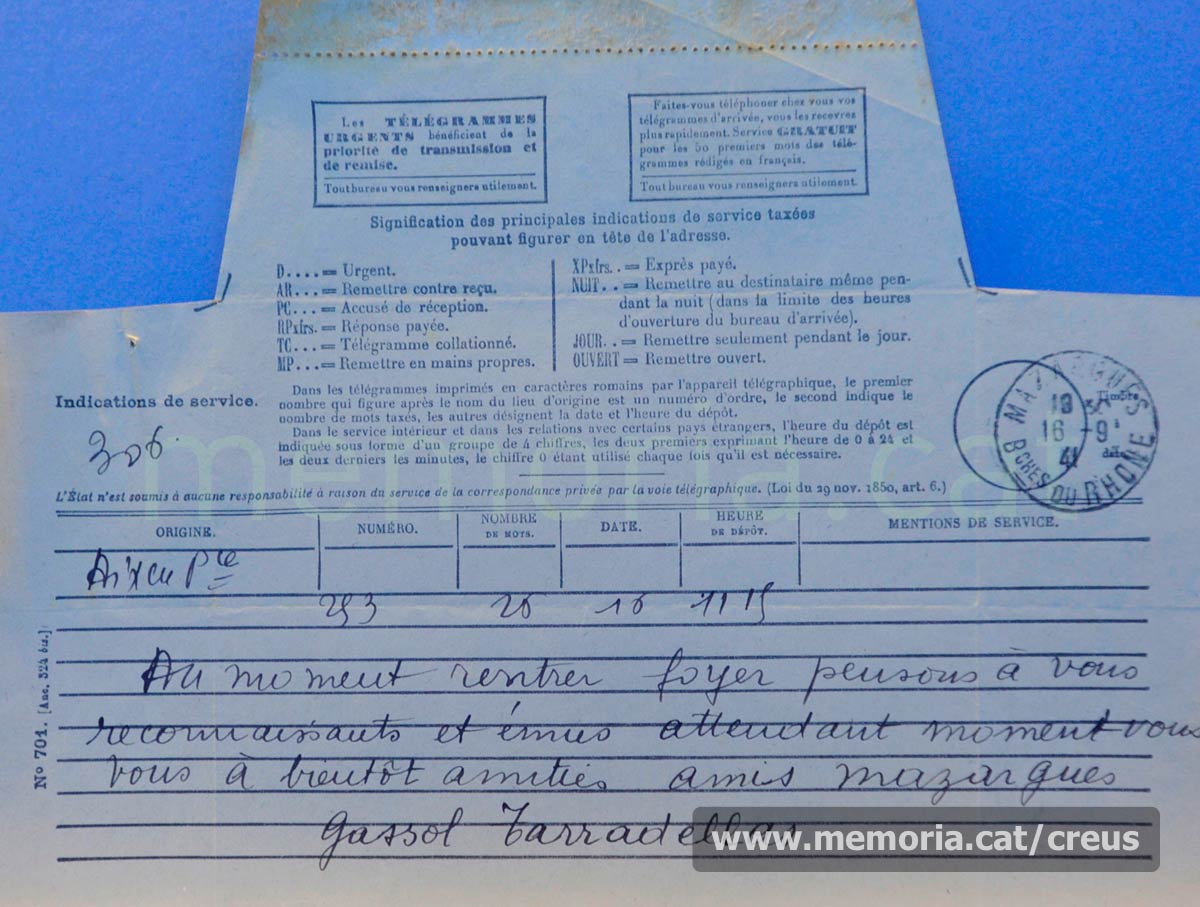 Les TÉLÉGRAMMES
URGENTS bénéficient de la
priorité de transmission et
de remise.
Tout bureau vous renseignera utilement.
Faites-vous téléphoner chez vous vos
télégrammes d'arrivée, vous les recevrez
plus rapidement. Service GRATUIT
pour les 50 premiers mots des télé-
grammes rédigés en français.
Tout bureau vous renseignera utilement.
Signification des principales indications de service taxées
pouvant figurer en tête de l'adresse.
D.... = Urgent.
AR... = Remettre contre reçu.
PC... = Accusé de réception.
RPxfrs. = Réponse payée.
TC... = Télégramme collationné.
MP... = Remettre en mains propres.
XPxfrs. . = Exprès payé.
NUIT. . = Remettre au destinataire même pen-
dant la nuit (dans la limite des heures
d'ouverture du bureau d'arrivée).
JOUR. . = Remettre seulement pendant le jour.
OUVERT = Remettre ouvert.
Indications de service.
306.
Dans les télégrammes imprimés en caractères romains par l'appareil télégraphique, le premier
nombre qui figure après le nom du lieu d'origine est un numéro d'ordre, le second indique le
nombre de mots taxés, les autres désignent la date et l'heure du dépôt.
Dans le service intérieur et dans les relations avec certains pays étrangers, l'heure du dépôt est
indiquée sous forme d'un groupe de 4 chiffres, les deux premiers exprimant l'heure de 0 à 24 et
les deux derniers les minutes, le chiffre 0 étant utilisé chaque fois qu'il est nécessaire.
Timbre
à date
MAZARGUES
16 -9
41
BCHES DU RHONE
memoria.cat
L'État n'est soumis à aucune responsabilité à raison du service de la correspondance privée par la voie télégraphique. (Loi du 29 nov. 1850, art. 6.)
ORIGINE. NUMÉRO. NOMBRE DE MOTS. DATE. HEURE DE DÉPÔT. MENTIONS DE SERVICE.
Aix en Pce
293 26 16 1115
Nº 701. [Anc. 324 bis.]
Au moment rentrer foyer pensons à vous
reconnaissants et émus attendant moment vous
vous à bientôt amitiés amis mazargues
Gassol Tarradellas
www.memoria.cat/creus